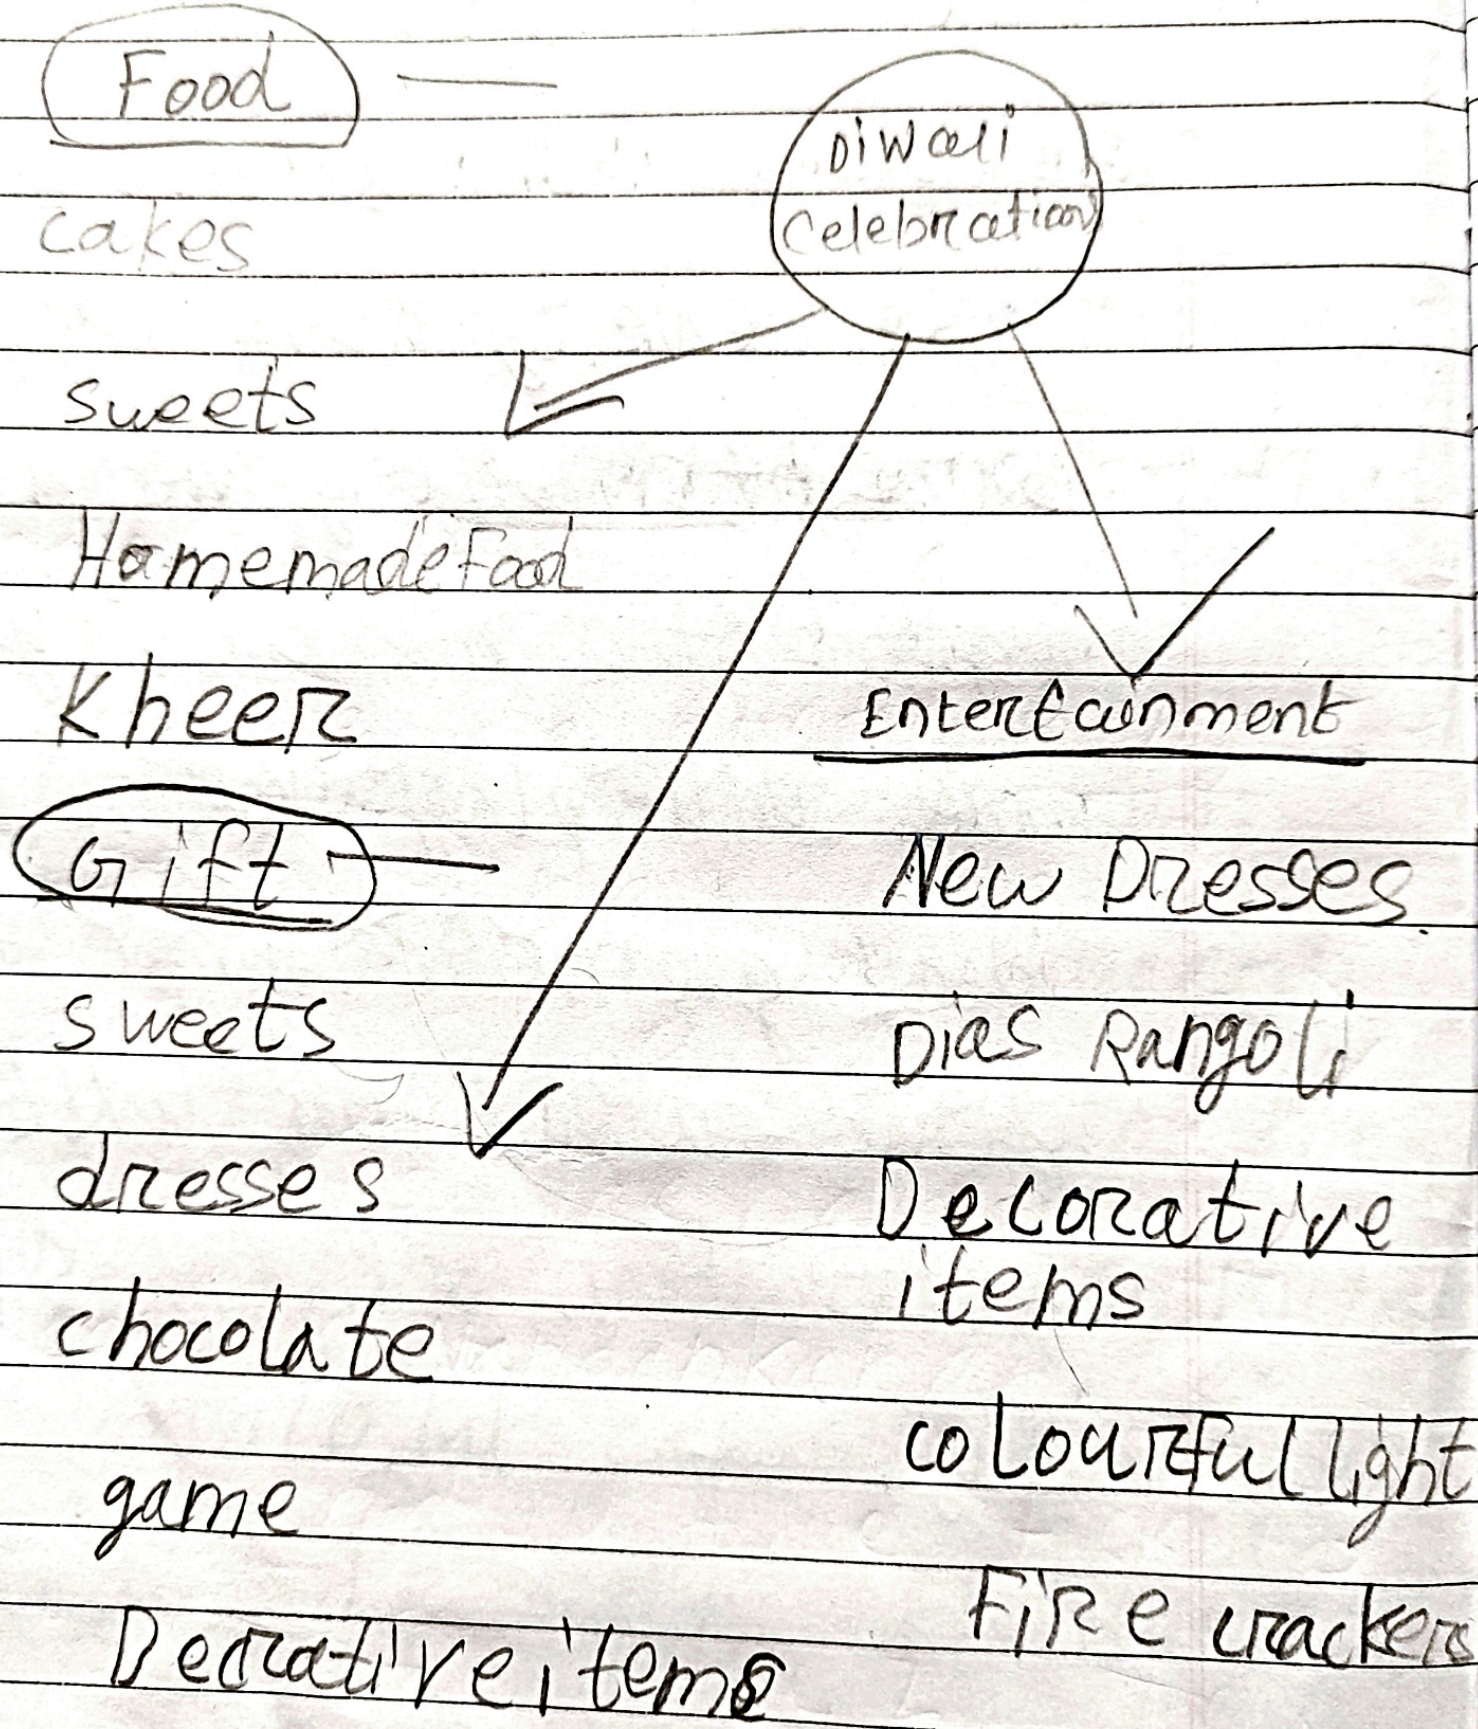 Food
Diwali
Celebration
cakes
sweets
Homemade Food
Kheer
Gift
sweets
dresses
chocolate
game
Decrative items
Entertainment
New Dresses
Dias Rangoli
Decorative
items
colourful light
Fire crackers